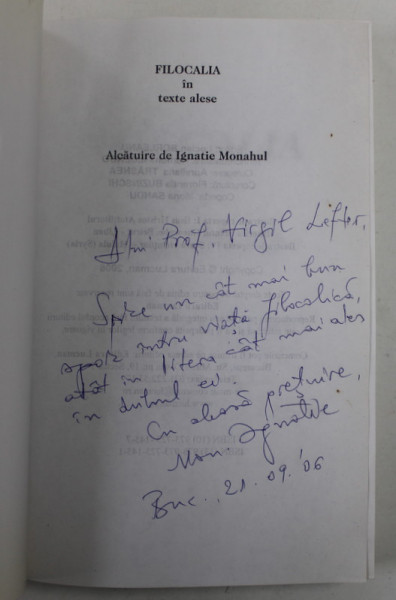 FILOCALIA
în
texte alese
Alcătuire de Ignatie Monahul
Dlui Prof. Virgil Lefter,
Spre un cât mai bun
spor întru viață filocalică,
atât în litera cât mai ales
în duhul ei.
Cu aleasă prețuire,
Mon. Ignatie
Buc., 21.09.'06